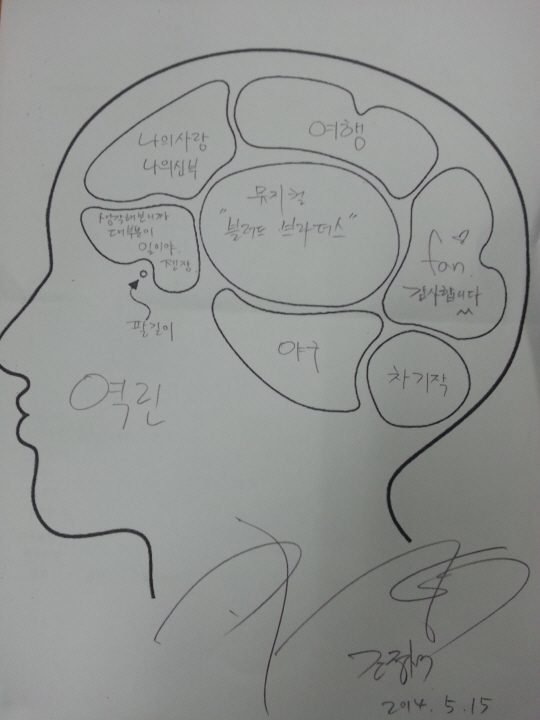 여행
나의사랑
나의신부
뮤지컬
"블러드 브라더스"
생각해보니까
대부분이
일이야.
젠장
fan.
감사합니다
팔길이
야구
차기작
역린
조정석
2014. 5. 15